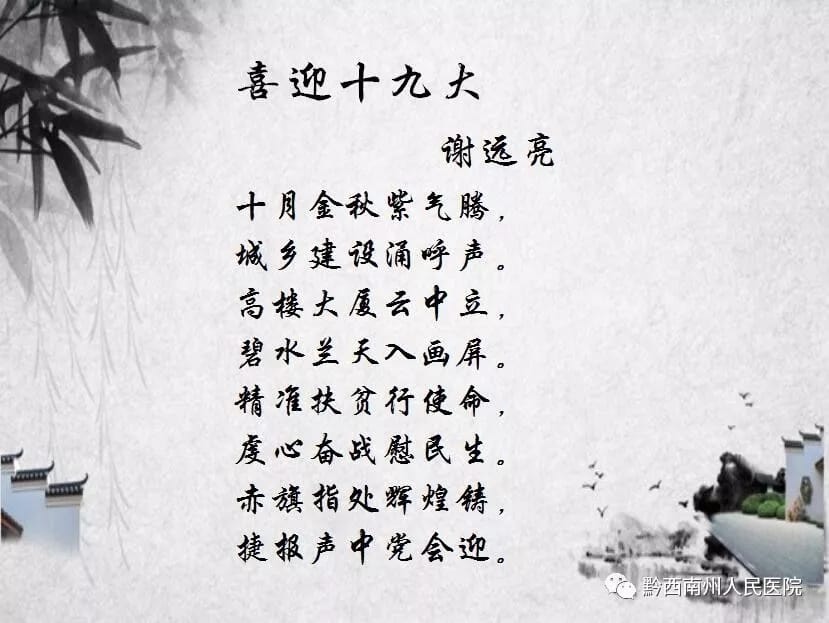 喜迎十九大
谢远亮
十月金秋紫气腾，
城乡建设涌呼声。
高楼大厦云中立，
碧水兰天入画屏。
精准扶贫行使命，
虔心奋战慰民生。
赤旗指处辉煌铸，
捷报声中党会迎。
黔西南州人民医院